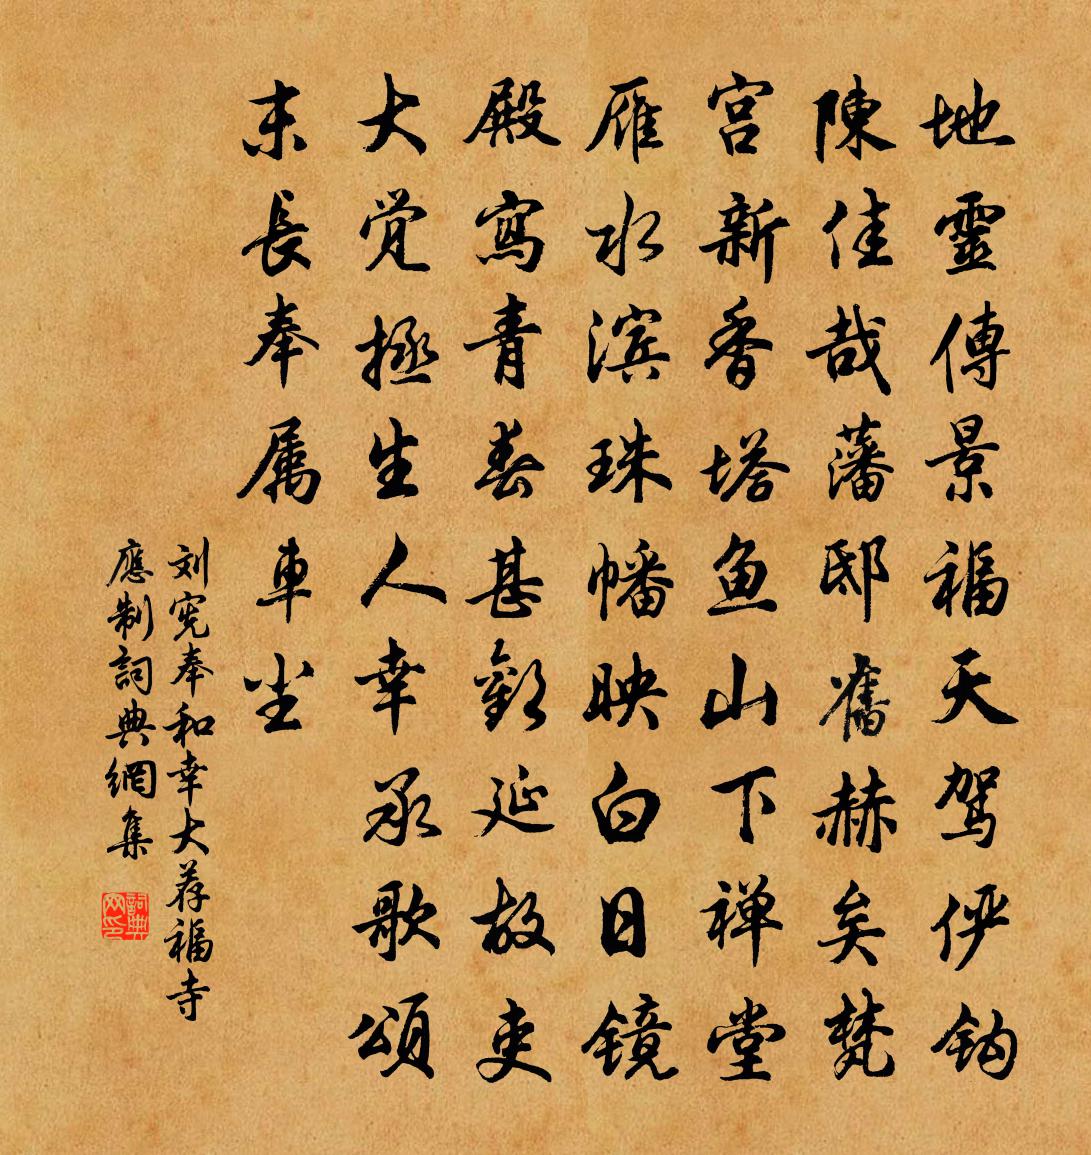 地靈傳景福天駕俨钩
陳佳哉藩邸舊赫矣梵
宫新香塔鱼山下禅堂
雁水滨珠幡映白日镜
殿寫青春甚歡延故吏
大觉拯生人幸承歌頌
末長奉属車尘
刘宪奉和幸大荐福寺
應制詞典網集
詞典网印